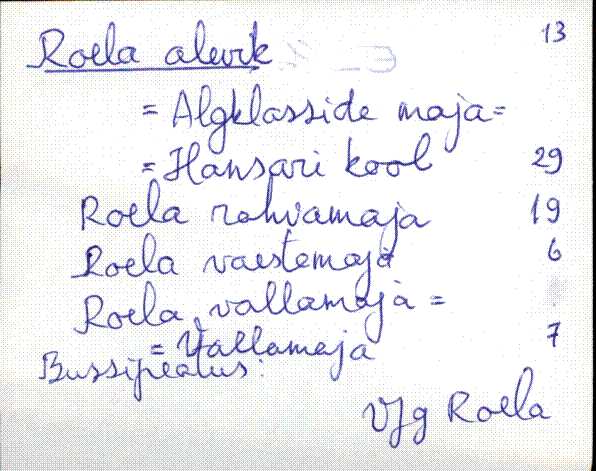 Roela alevik 13
= Algklasside maja =
= Hansari kool 29
Roela rahvamaja 19
Roela vaestemaja 6
Roela vallamaja =
= Vallamaja 7
Bussipeatus:
VJg Roela